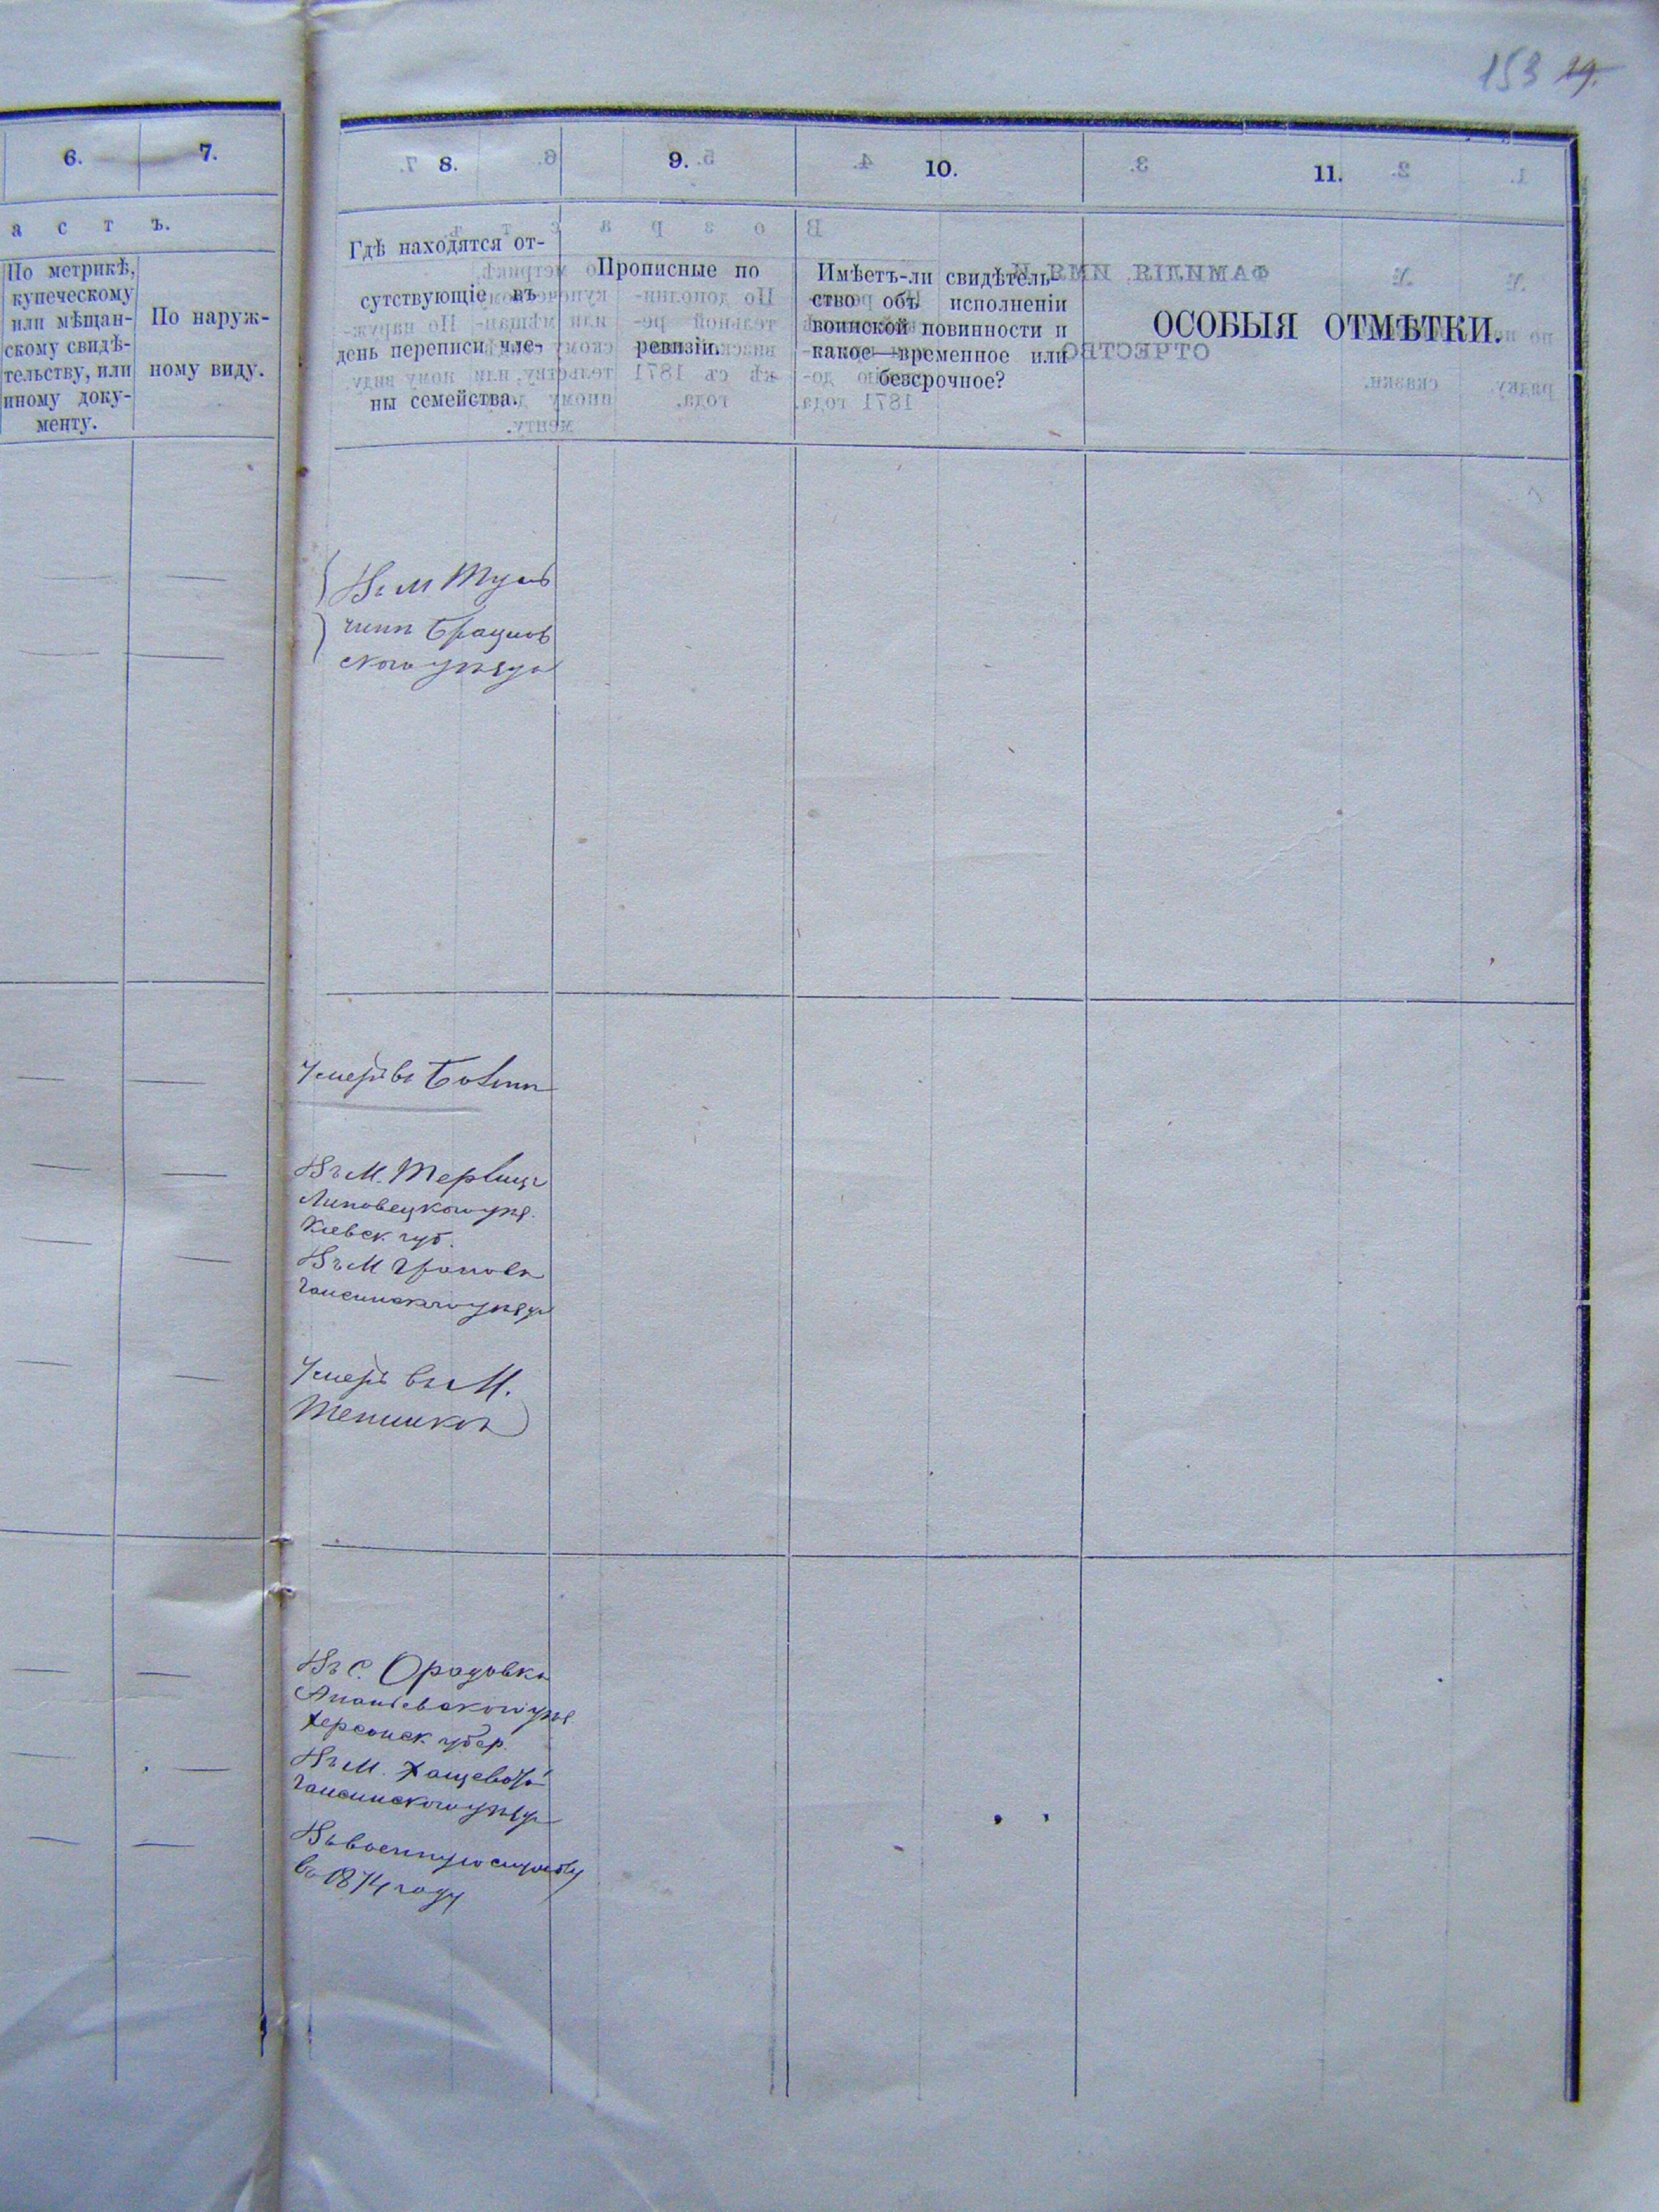 153 19.
6. 7. 8. 9. 10. 11.
а с т ъ.
По метрикѣ,
купеческому
или мѣщан-
скому свидѣ-
тельству, или
иному доку-
менту.
По наруж-
ному виду.
Гдѣ находятся от-
сутствующіе въ
день переписи чле-
ны семейства.
Прописные по
ревизіи.
Имѣетъ-ли свидѣтель-
ство объ исполненіи
воинской повинности и
какое—временное или
безсрочное?
ОСОБЫЯ ОТМѢТКИ.
Въ М Туль
чинѣ Брацлав
скаго уѣзда
Умеръ въ
Въ М.
Липовецкого уѣз.
Кіевск губ.
Въ М Грановѣ
Гайсинскаго уѣзда
Умеръ въ М.
Тепликѣ
Въ С.
Ананіевскаго уѣз.
Херсонск губер.
Въ М. Хащеватой
Гайсинского уѣзда
Въ военную службу
въ 1874 году